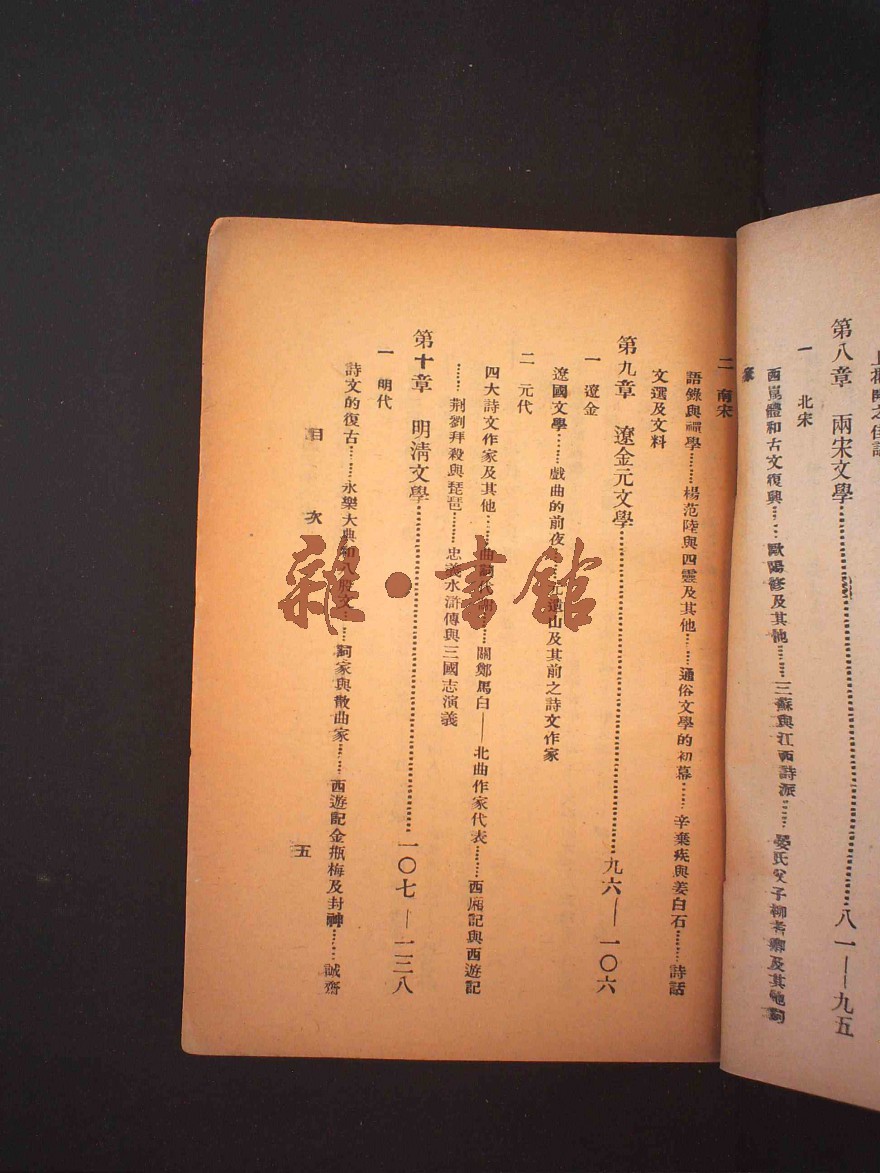 第八章　兩宋文學…………八一——九五
一　北宋
西崑體和古文復興……歐陽修及其他……三蘇與江西詩派……晏氏父子柳耆卿及其他詞
家
二　南宋
語錄與禪學……楊范陸與四靈及其他……通俗文學的初幕……辛棄疾與姜白石……詩話
文選及文料
第九章　遼金元文學…………九六——一〇六
一　遼金
遼國文學……戲曲的前夜……元遺山及其前之詩文作家
二　元代
四大詩文作家及其他……曲詞代……關鄭馬白——北曲作家代表……西廂記與西遊記
……荆劉拜殺與琵琶……忠義水滸傳與三國志演義
第十章　明清文學…………一〇七——一三八
一　明代
詩文的復古……永樂大典和八股文……詞家與散曲家……西遊記金瓶梅及封神……誠齋
目　次　五
雜·書館